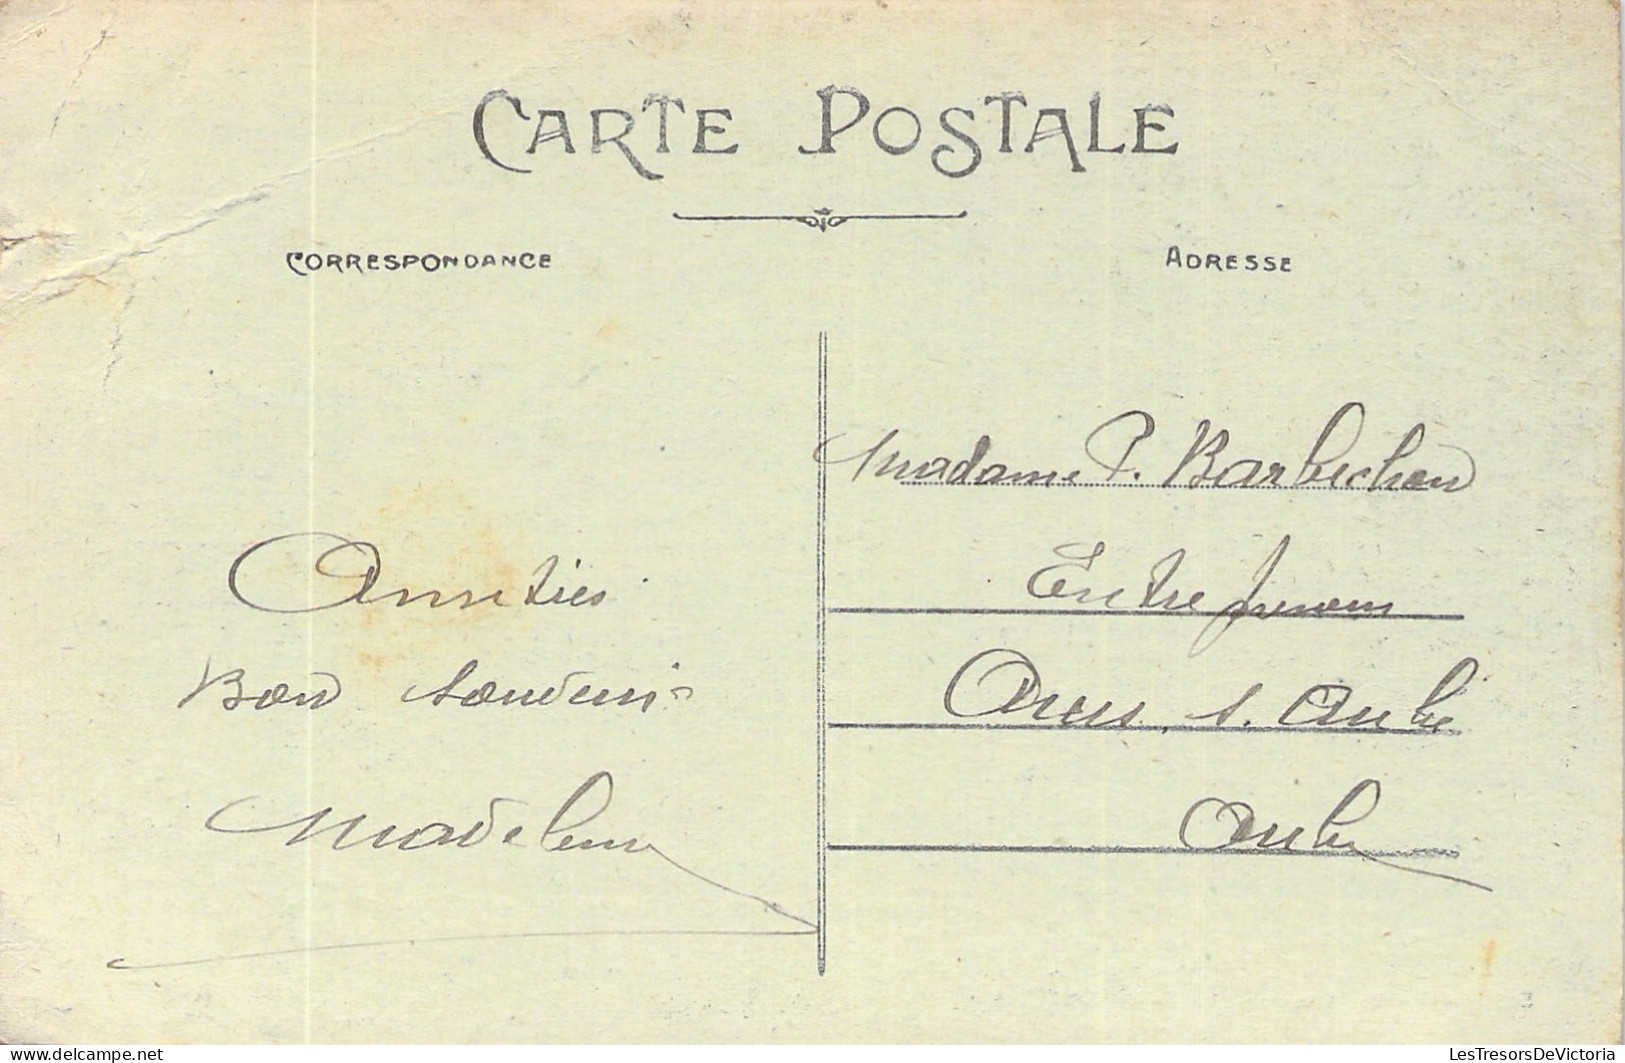 CARTE POSTALE
CORRESPONDANCE
ADRESSE
Amitiés
Bon souvenir
Madeleine
Madame P. Barbichon
Arcis s. Aube
Aube
delcampe.net
LesTresorsDeVictoria